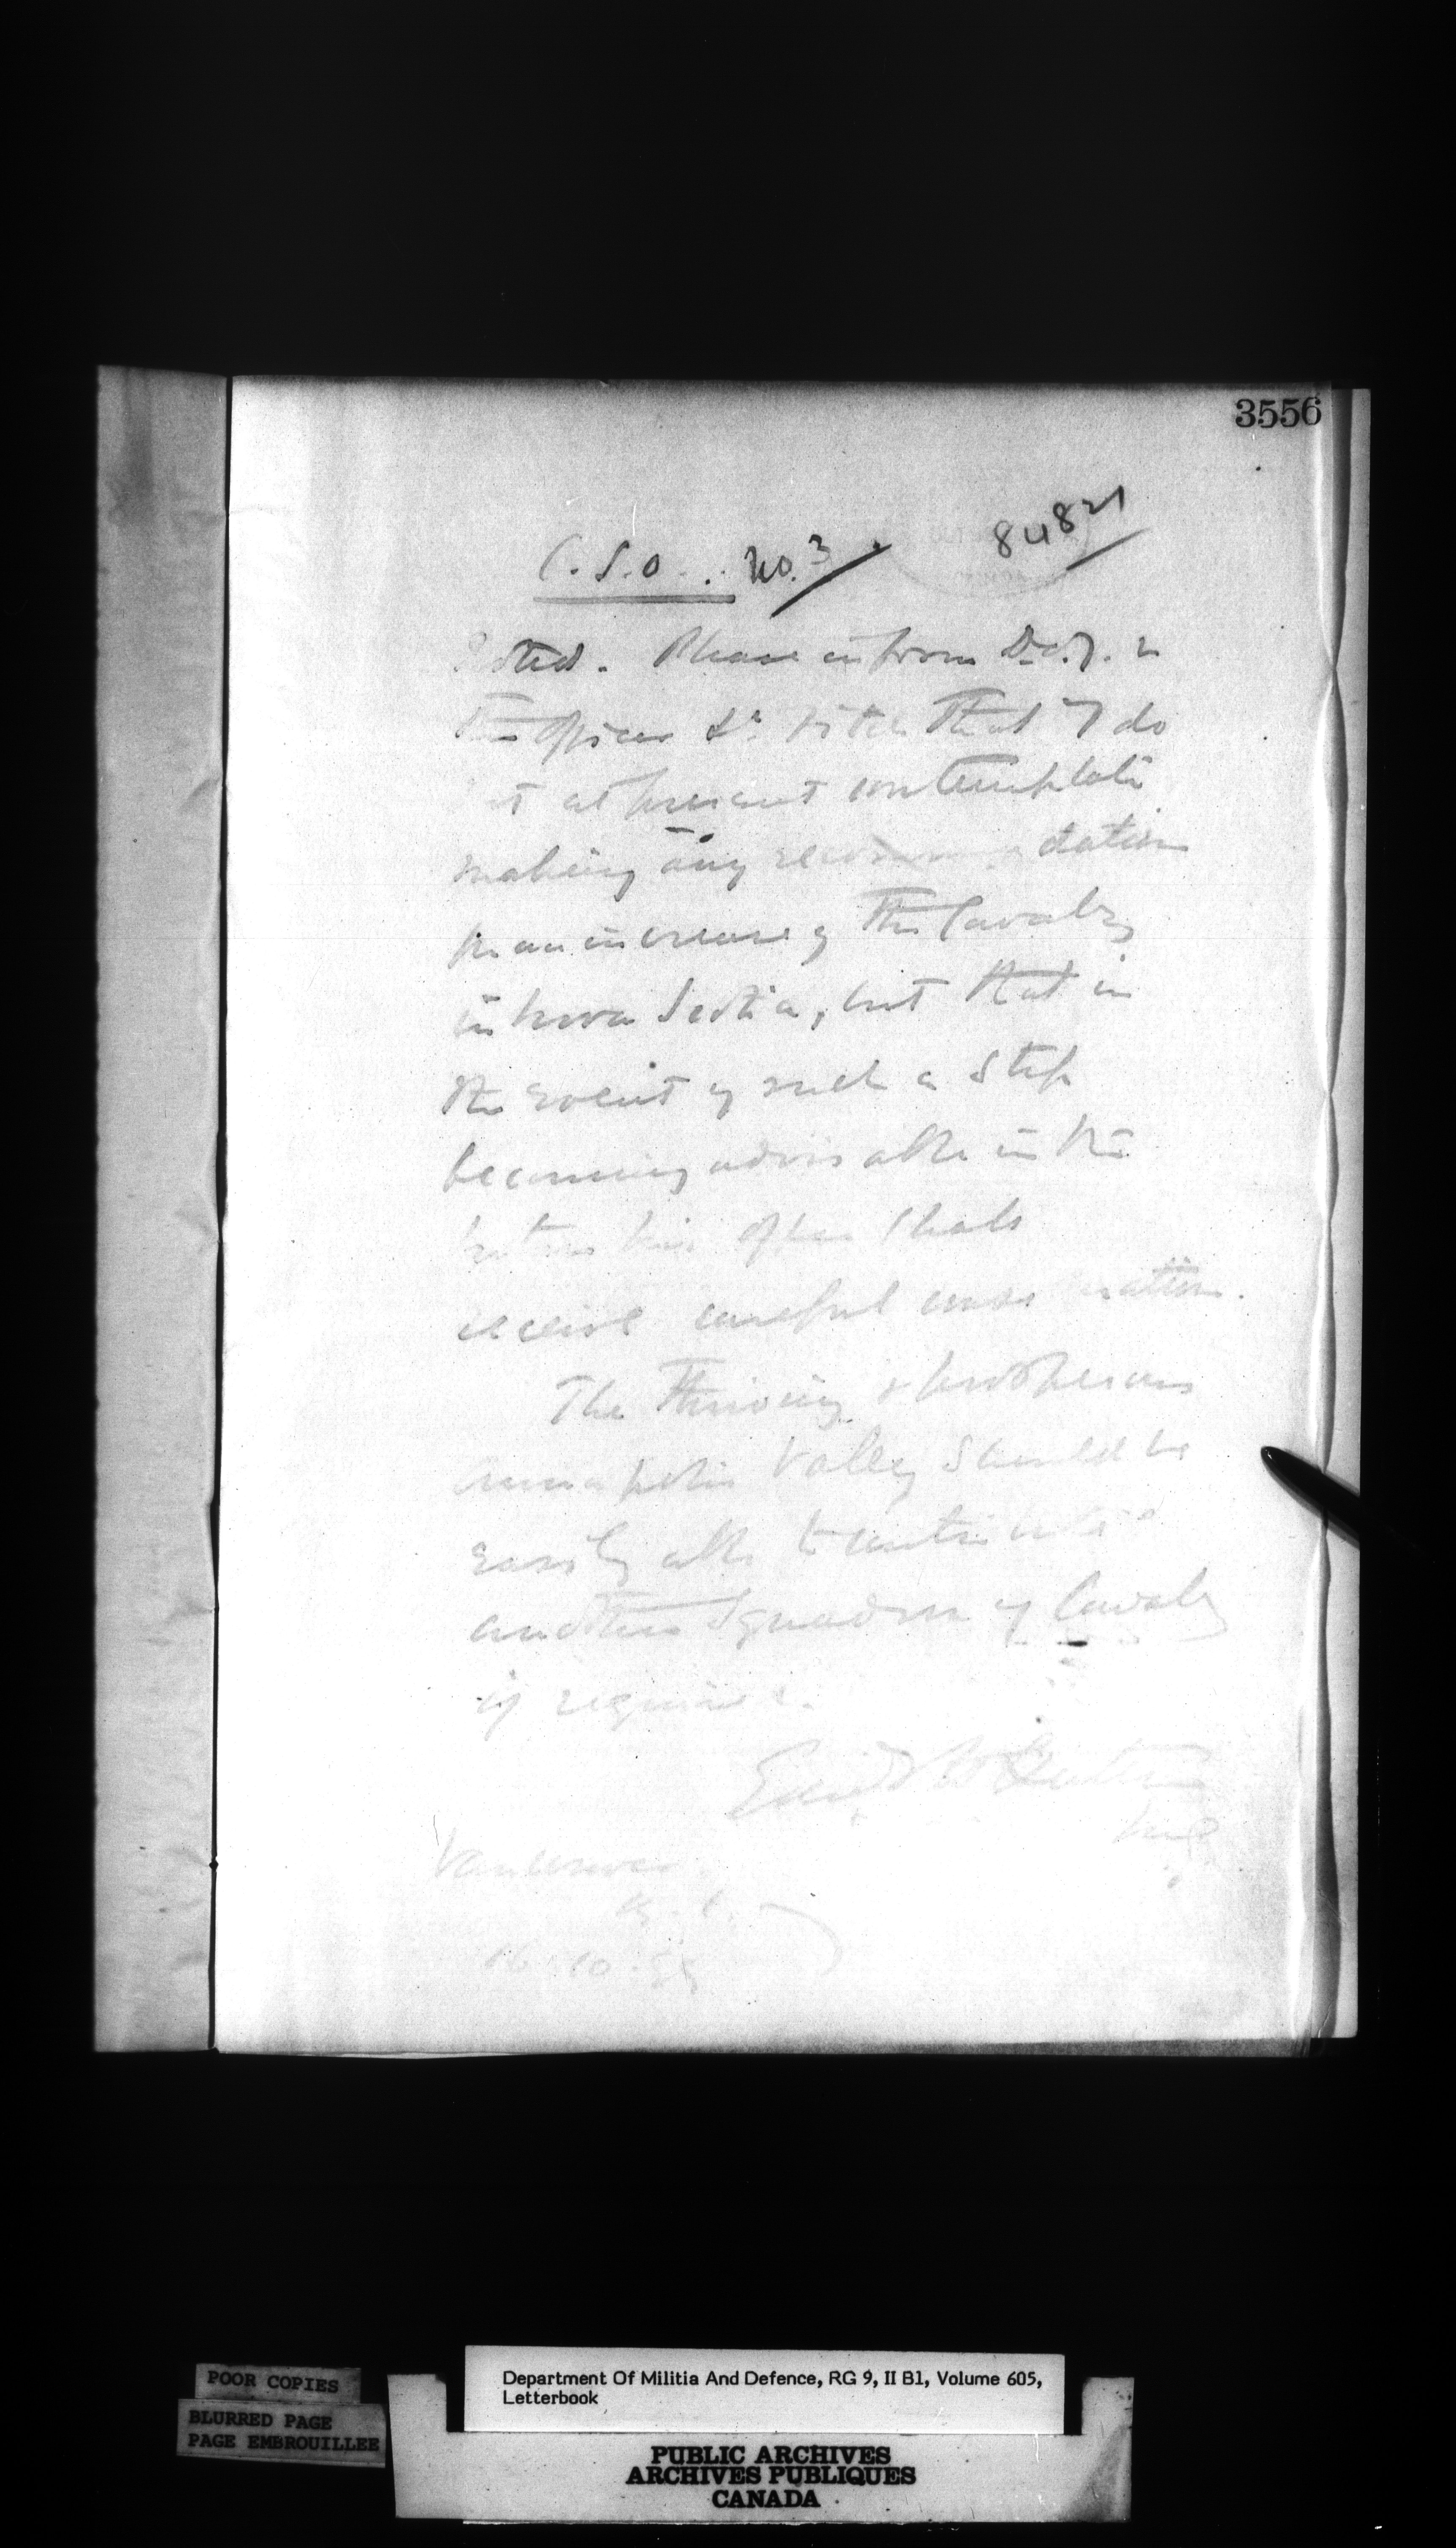 3556
84821
C.S.O. No. 3
Noted. Please inform D.O.C. in
this that I do
not at present contemplate
making any recommendation
for an increase of the Cavalry
in Nova Scotia, but that in
the event of such a step
becoming advisable in the
future his offer shall
receive careful consideration.
The thriving & prosperous
Annapolis Valley should be
easily able to contribute
another Squadron of Cavalry
if required.
Vancouver
B.C.
16.10.
POOR COPIES
BLURRED PAGE
PAGE EMBROUILLEE
Department Of Militia And Defence, RG 9, II B1, Volume 605,
Letterbook
PUBLIC ARCHIVES
ARCHIVES PUBLIQUES
CANADA